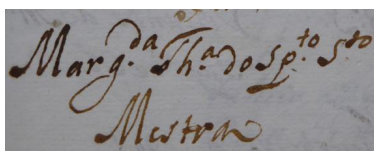 Marg.da Th.a do Sp.to S.to
Mestra